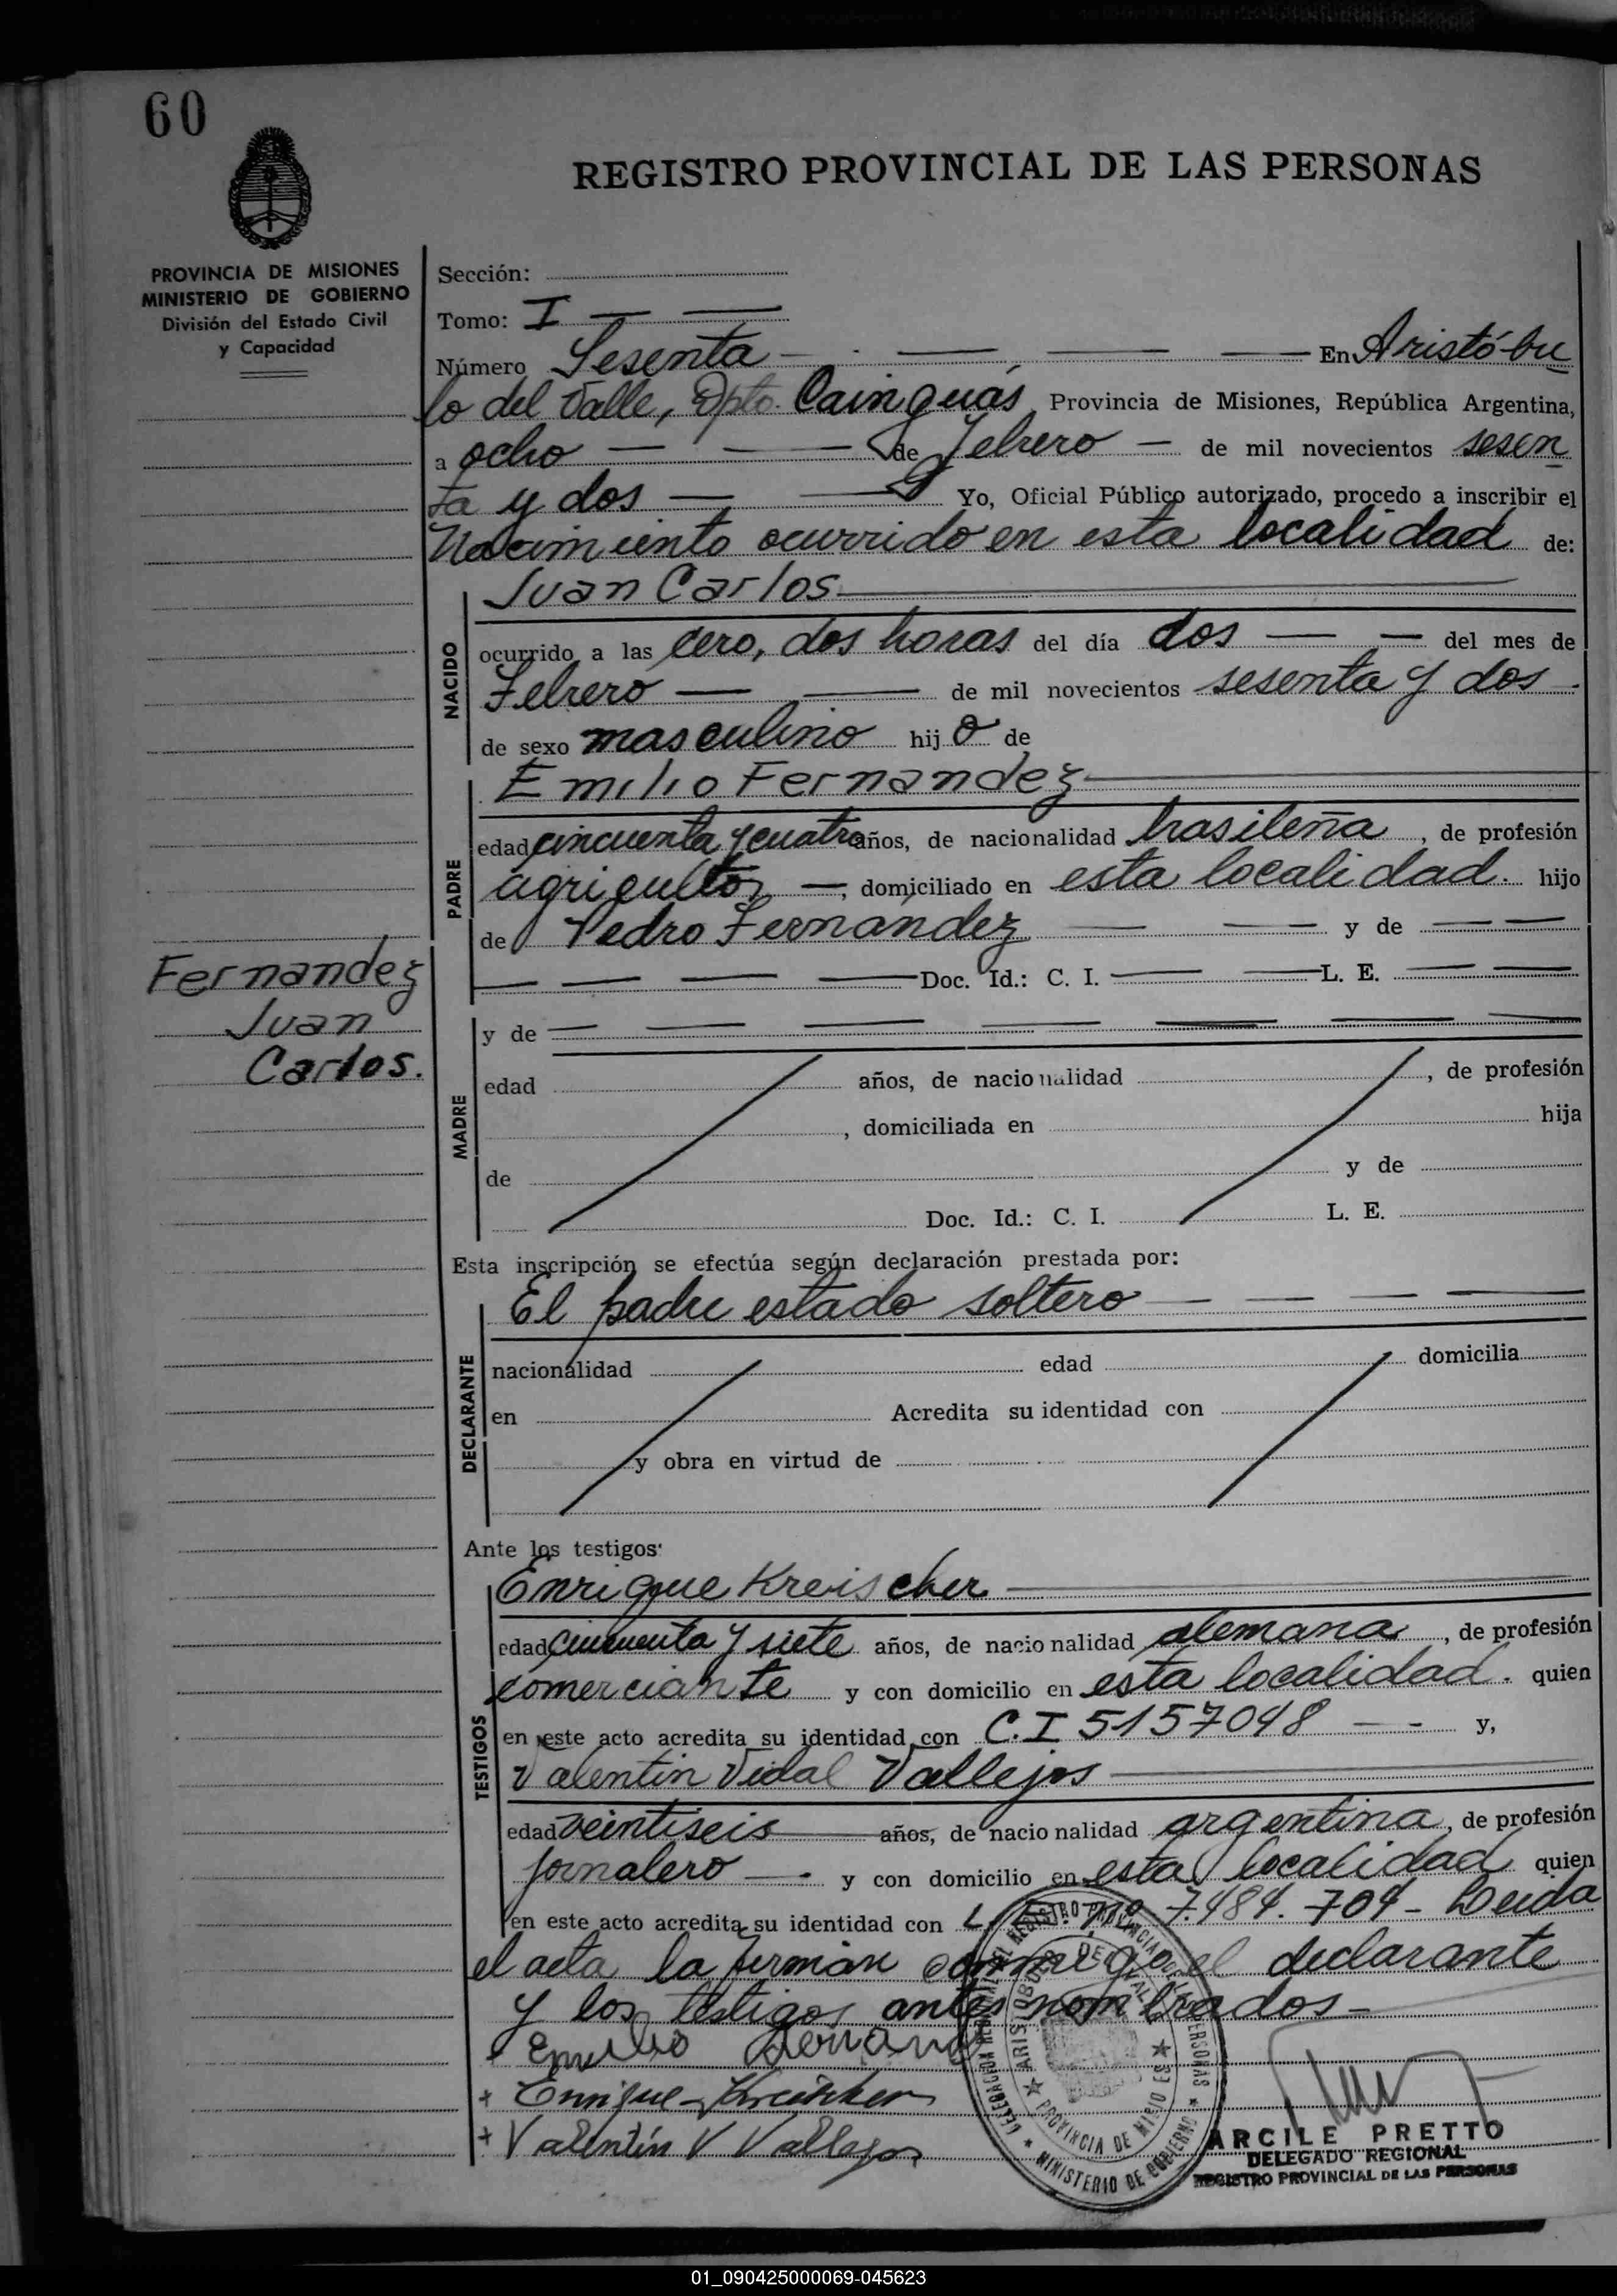 60
REGISTRO PROVINCIAL DE LAS PERSONAS
PROVINCIA DE MISIONES
MINISTERIO DE GOBIERNO
División del Estado Civil
y Capacidad
Sección:
Tomo: I
Número Sesenta En Aristóbu
lo del Valle, Dpto. Cainguás Provincia de Misiones, República Argentina,
a ocho de Febrero de mil novecientos sesen
ta y dos Yo, Oficial Público autorizado, procedo a inscribir el
Nacimiento ocurrido en esta localidad de:
Juan Carlos
NACIDO
ocurrido a las cero, dos horas del día dos del mes de
Febrero de mil novecientos sesenta y dos
de sexo masculino hijo de
Emilio Fernandez
PADRE
edad cincuenta y cuatro años, de nacionalidad brasileña, de profesión
agricultor, domiciliado en esta localidad. hijo
de Pedro Fernández y de
Doc. Id.: C. I. L. E.
Fernandez
Juan
Carlos.
MADRE
y de
edad años, de nacionalidad , de profesión
, domiciliada en hija
de y de
Doc. Id.: C. I. L. E.
Esta inscripción se efectúa según declaración prestada por:
El padre estado soltero
DECLARANTE
nacionalidad edad domicilia
en Acredita su identidad con
y obra en virtud de
Ante los testigos:
Enrique Kreischer
TESTIGOS
edad cincuenta y siete años, de nacionalidad alemana, de profesión
comerciante y con domicilio en esta localidad. quien
en este acto acredita su identidad con C.I 5157048 - - y,
Valentin Vidal Vallejos
edad veintiseis años, de nacionalidad argentina, de profesión
jornalero y con domicilio en esta localidad quien
en este acto acredita su identidad con L.E. Nº 7.484.704 - Leida
el acta la firman conmigo el declarante
y los testigos antes nombrados -
Emilio
+ Enrique Kreischer
+ Valentín V Vallejos
DELEGACION REGIONAL DEL REGISTRO PROVINCIAL DE LAS PERSONAS
ARISTOBULO DEL VALLE
PROVINCIA DE MISIONES
MINISTERIO DE GOBIERNO
ARCILE PRETTO
DELEGADO REGIONAL
REGISTRO PROVINCIAL DE LAS PERSONAS
01_090425000069-045623